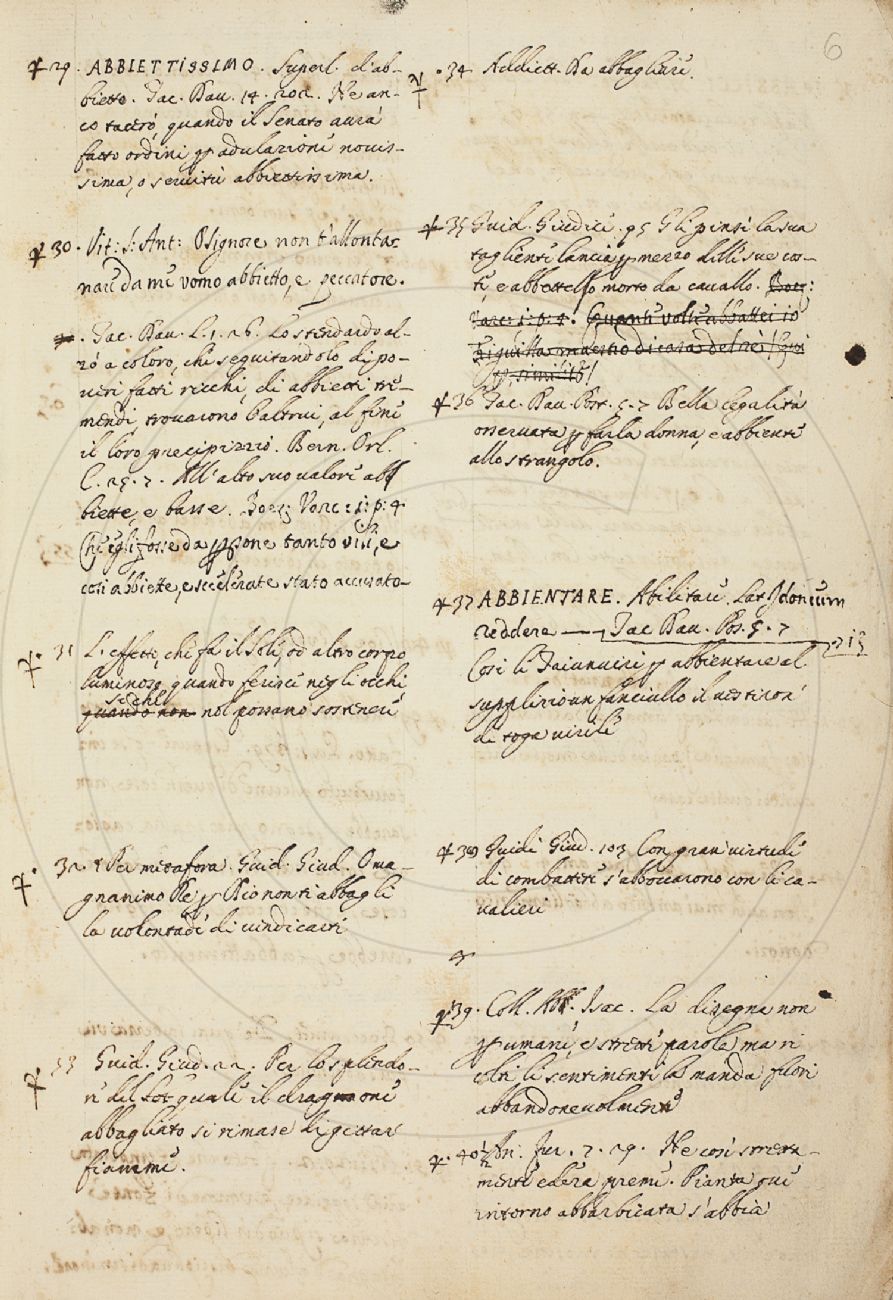 6
29. ABBIETTISSIMO. Superl. d'ab-
bietto. Tac. Dav. 14. 202. Ne an-
co tacerò, quando il Senato aurà
fatto ordini p adulazione nouis-
sima, o seruitù abbiettissima.
30. Vit: S: Ant: O Signore non t'allonta-
nare da me uomo abbietto, e peccatore.
Tac. Dav. L. 1. 26. Lo stendardo al-
zò a coloro, che seguitandolo di po-
ueri fatti ricchi, di abbietti tre-
mendi, trouarono d'altrui, al fine
il loro precipizzio. Bern. Orl.
2. 25. 2. All'alto suo valore abb
biette, e basse. Boez: Varc: 1: p: 4
Che egli fosse da psone tanto vili, e
così abbiette, e scelerate stato accusato
31 L'effetto, che fa il Sole, od altro corpo
luminoso, quando ferisce negli occhi
sì che
quando non nol possano sostenere
32 Per metafora. Guid. Giud. O ma-
gnanimo Re p Dio non ti abbagli
la volontade di vindicarti
33 Guid. Giud. 22. Per lo splendo-
re del quale il dragone
abbagliato si rimase di gittar
fiamme.
34 Addiett. Da abbagliare.
35 Guid. Giudice. 95 Gli pinse la sua
tagliente lancia p mezzo delle sue cos-
te, e abbattelo morto da cauallo. Boez:
Varc: 1: p: 4. Quante volte abbattei io
36 Tac. Dav. Post. 5. 2 Bella legalità
osseruata p farla donna, e abbiente
allo strangolo.
37 ABBIENTARE. Abilitare. Lat Idoneum
reddere — Tac Dav. Pos. 5. 2
Così li Triunuiri p abbientare al
supplizio un fanciullo il vestiron'
di toga virile
38 Guidi Giud. 103 Con gran virtude
di combattere s'abboccarono con li ca-
valieri
39. Coll. Ab. Isac. La disegna non
p umane, e strette parole ma ri
colti li sentimenti la manda fuori
abbandoneuolmente
40 Fur. 7. 29. Ne così stretta-
mente edera preme. Pianta oue
intorno abbarbicata s'abbia